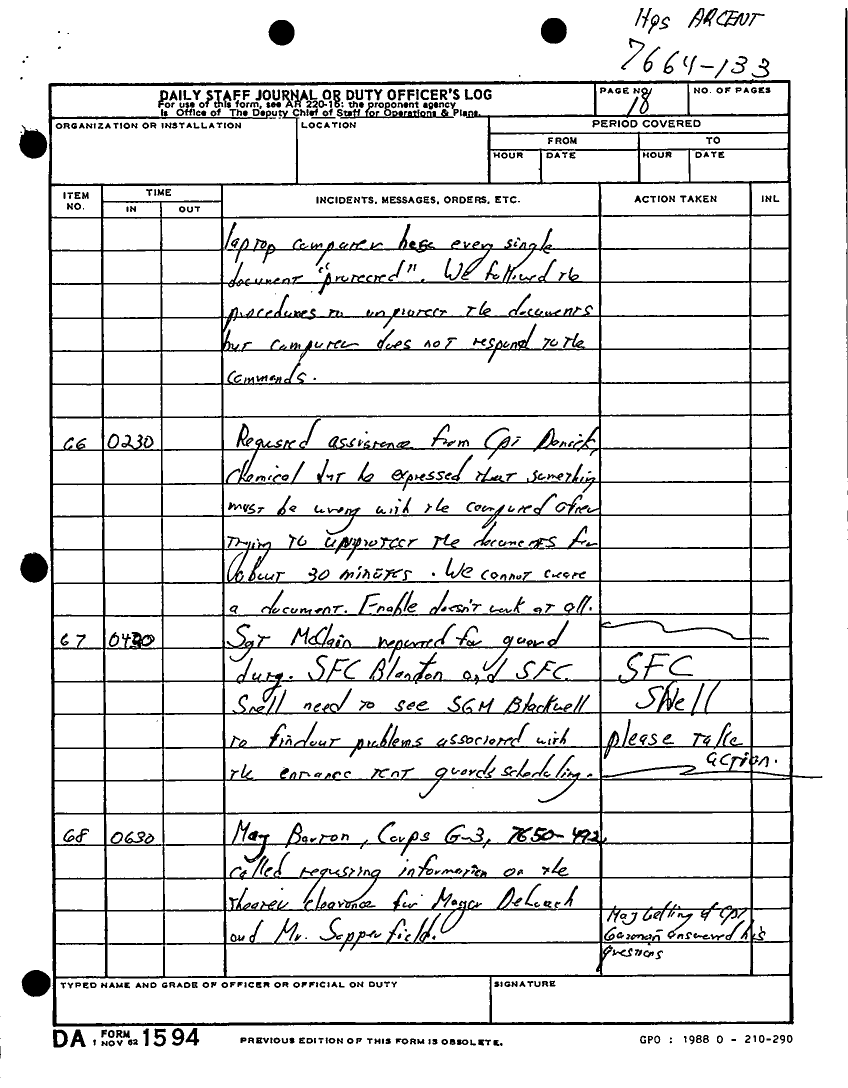 Hqs ARCENT
7664-133
DAILY STAFF JOURNAL OR DUTY OFFICER'S LOG
For use of this form, see AR 220-15; the proponent agency
is Office of The Deputy Chief of Staff for Operations & Plans.
PAGE NO.
18
NO. OF PAGES
ORGANIZATION OR INSTALLATION
LOCATION
PERIOD COVERED
FROM
TO
HOUR
DATE
HOUR
DATE
ITEM NO.
TIME
IN
OUT
INCIDENTS, MESSAGES, ORDERS, ETC.
ACTION TAKEN
INL
laptop computer has every single
document "protected". We followed the
procedures to unprotect the documents
but computer does not respond to the
commands.
66 0230 Requsted assistence from CPT
chemical but he expressed that something
must be wrong with the computed after
trying to unprotect the documents for
about 30 minutes. We cannot create
a document. Enable doesn't work at all.
67 Sgt McClain reported for guard
duty. SFC Blanton and SFC
Snell need to see SGM Blackwell
to findout problems associated with
the entrance tent guards scheduling.
SFC
SNell
please take
action.
68 0630 Maj Barron, Corps G-3, 7650-492,
called requsting information on the
theater clearance for Mayor DeLoach
and Mr. Sapperfield.
Maj & CPT
answered his
questions
TYPED NAME AND GRADE OF OFFICER OR OFFICIAL ON DUTY
SIGNATURE
DA FORM 1 NOV 62 1594
PREVIOUS EDITION OF THIS FORM IS OBSOLETE.
GPO : 1988 O - 210-290